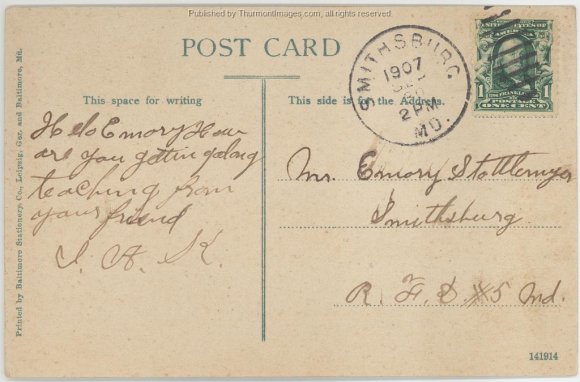 Published by ThurmontImages.com, all rights reserved.
POST CARD
This space for writing
Helo Emory How
are you gettin along
teaching from
your friend
I. A. K.
This side is for the Address.
SMITHSBURG
1907
2PM
MD.
1 1
POSTAGE
ONE CENT
Mr. Emory Stottlemyer
Smithsburg
R. F. D #5 Md.
Printed by Baltimore Stationery Co., Leipsig, Ger. and Baltimore, Md.
141914